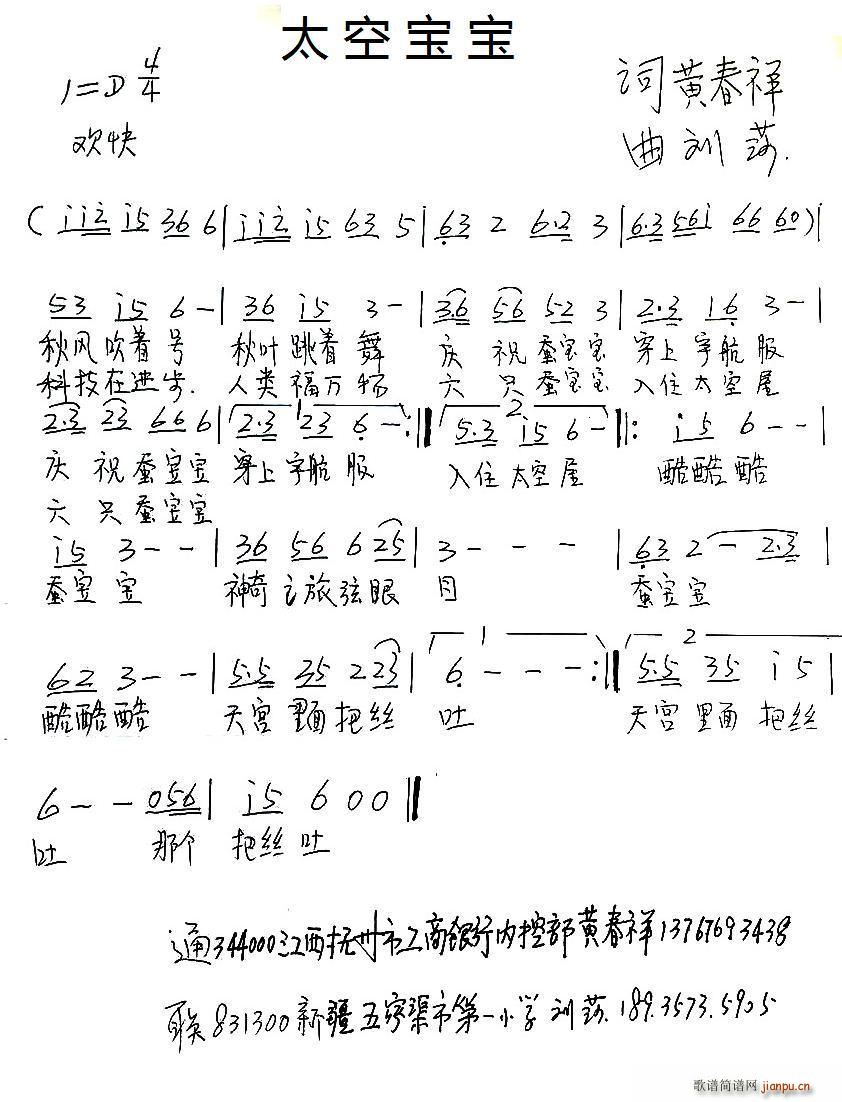 太空宝宝
1=D 4/4
词黄春祥
欢快
曲刘莎.
(i i 2 i 5 3 6 6|i i 2 i 5 6 3 5|6 3 2 6·2 3|6·3 5 6 i 6 6 6 0)|
5 3 i 5 6 -|3 6 i 5 3 -|3 6 5 6 5 2 3|2·3 1 6 3 -|
秋风吹着号 秋叶跳着舞 庆祝蚕宝宝 穿上宇航服
科技在进步. 人类福万扬 六只蚕宝宝 入住太空屋
2·3 2 3 6 6 6|2·3 2 3 6 -:‖5·3 i 5 6 -‖: i 5 6 - -|
庆祝蚕宝宝 穿上宇航服 入住太空屋 酷酷酷
六只蚕宝宝
i 5 3 - -|3 6 5 6 6 2 5|3 - - -|6 3 2 - 2·3|
蚕宝宝 神奇之旅弦眼目 蚕宝宝
6 2 3 - -|5·5 3 5 2 2 3|6 - - -:‖5·5 3 5 i 5|
酷酷酷 天宫里面把丝吐 天宫里面把丝
6 - - 0 5 6|i 5 6 0 0‖
吐 那个把丝吐
通344000江西抚州市工商银行内控部黄春祥13767693438
联831300新疆五家渠市第一小学刘莎.189.3573.5905
歌谱简谱网 jianpu.cn